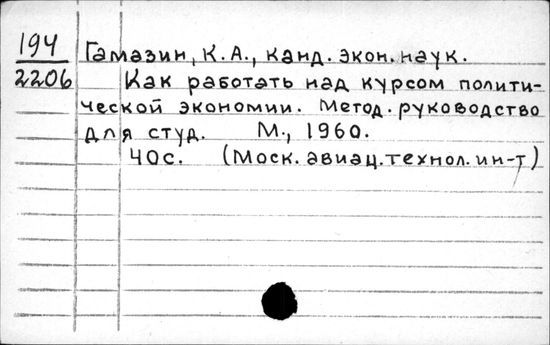 194 Гамазин, К.А., канд. экон. наук.
2206 Как работать над курсом полити-
ческой экономии. Метод. руководство
для студ. М., 1960.
40с. (Моск. авиац. технол. ин-т)